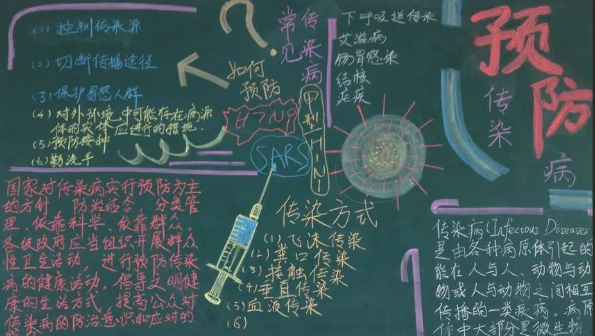 (1) 控制传染源
(2) 切断传播途径
(3) 保护易感人群
(4) 对外环境中可能存在病源
体的实体应进行的措施.
(5) 预防接种
(6) 勤洗手
?
如何
预防
常见
传染病
下呼吸道传染
艾滋病
肠胃感染
结核
疟疾
预防
传染
病
H7N9
SARS
甲型H1N1
国家对传染病实行预防为主
的方针 防治结合 分类管
理、依靠科学、依靠群众,
各级政府应当组织开展群众
性卫生活动 进行预防传染
病的健康活动,倡导文明健
康的生活方式,提高公众对
传染病的防治意识和应对的
传染方式
(1) 飞沫传染
(2) 粪口传染
(3) 接触传染
(4) 垂直传染
(5) 血液传染
(6)
传染病(Infecious Diseases)
是由各种病原体引起的
能在人与人、动物与动
物或人与动物之间相互
传播的一类疾病。病原
体中大部分是微生物